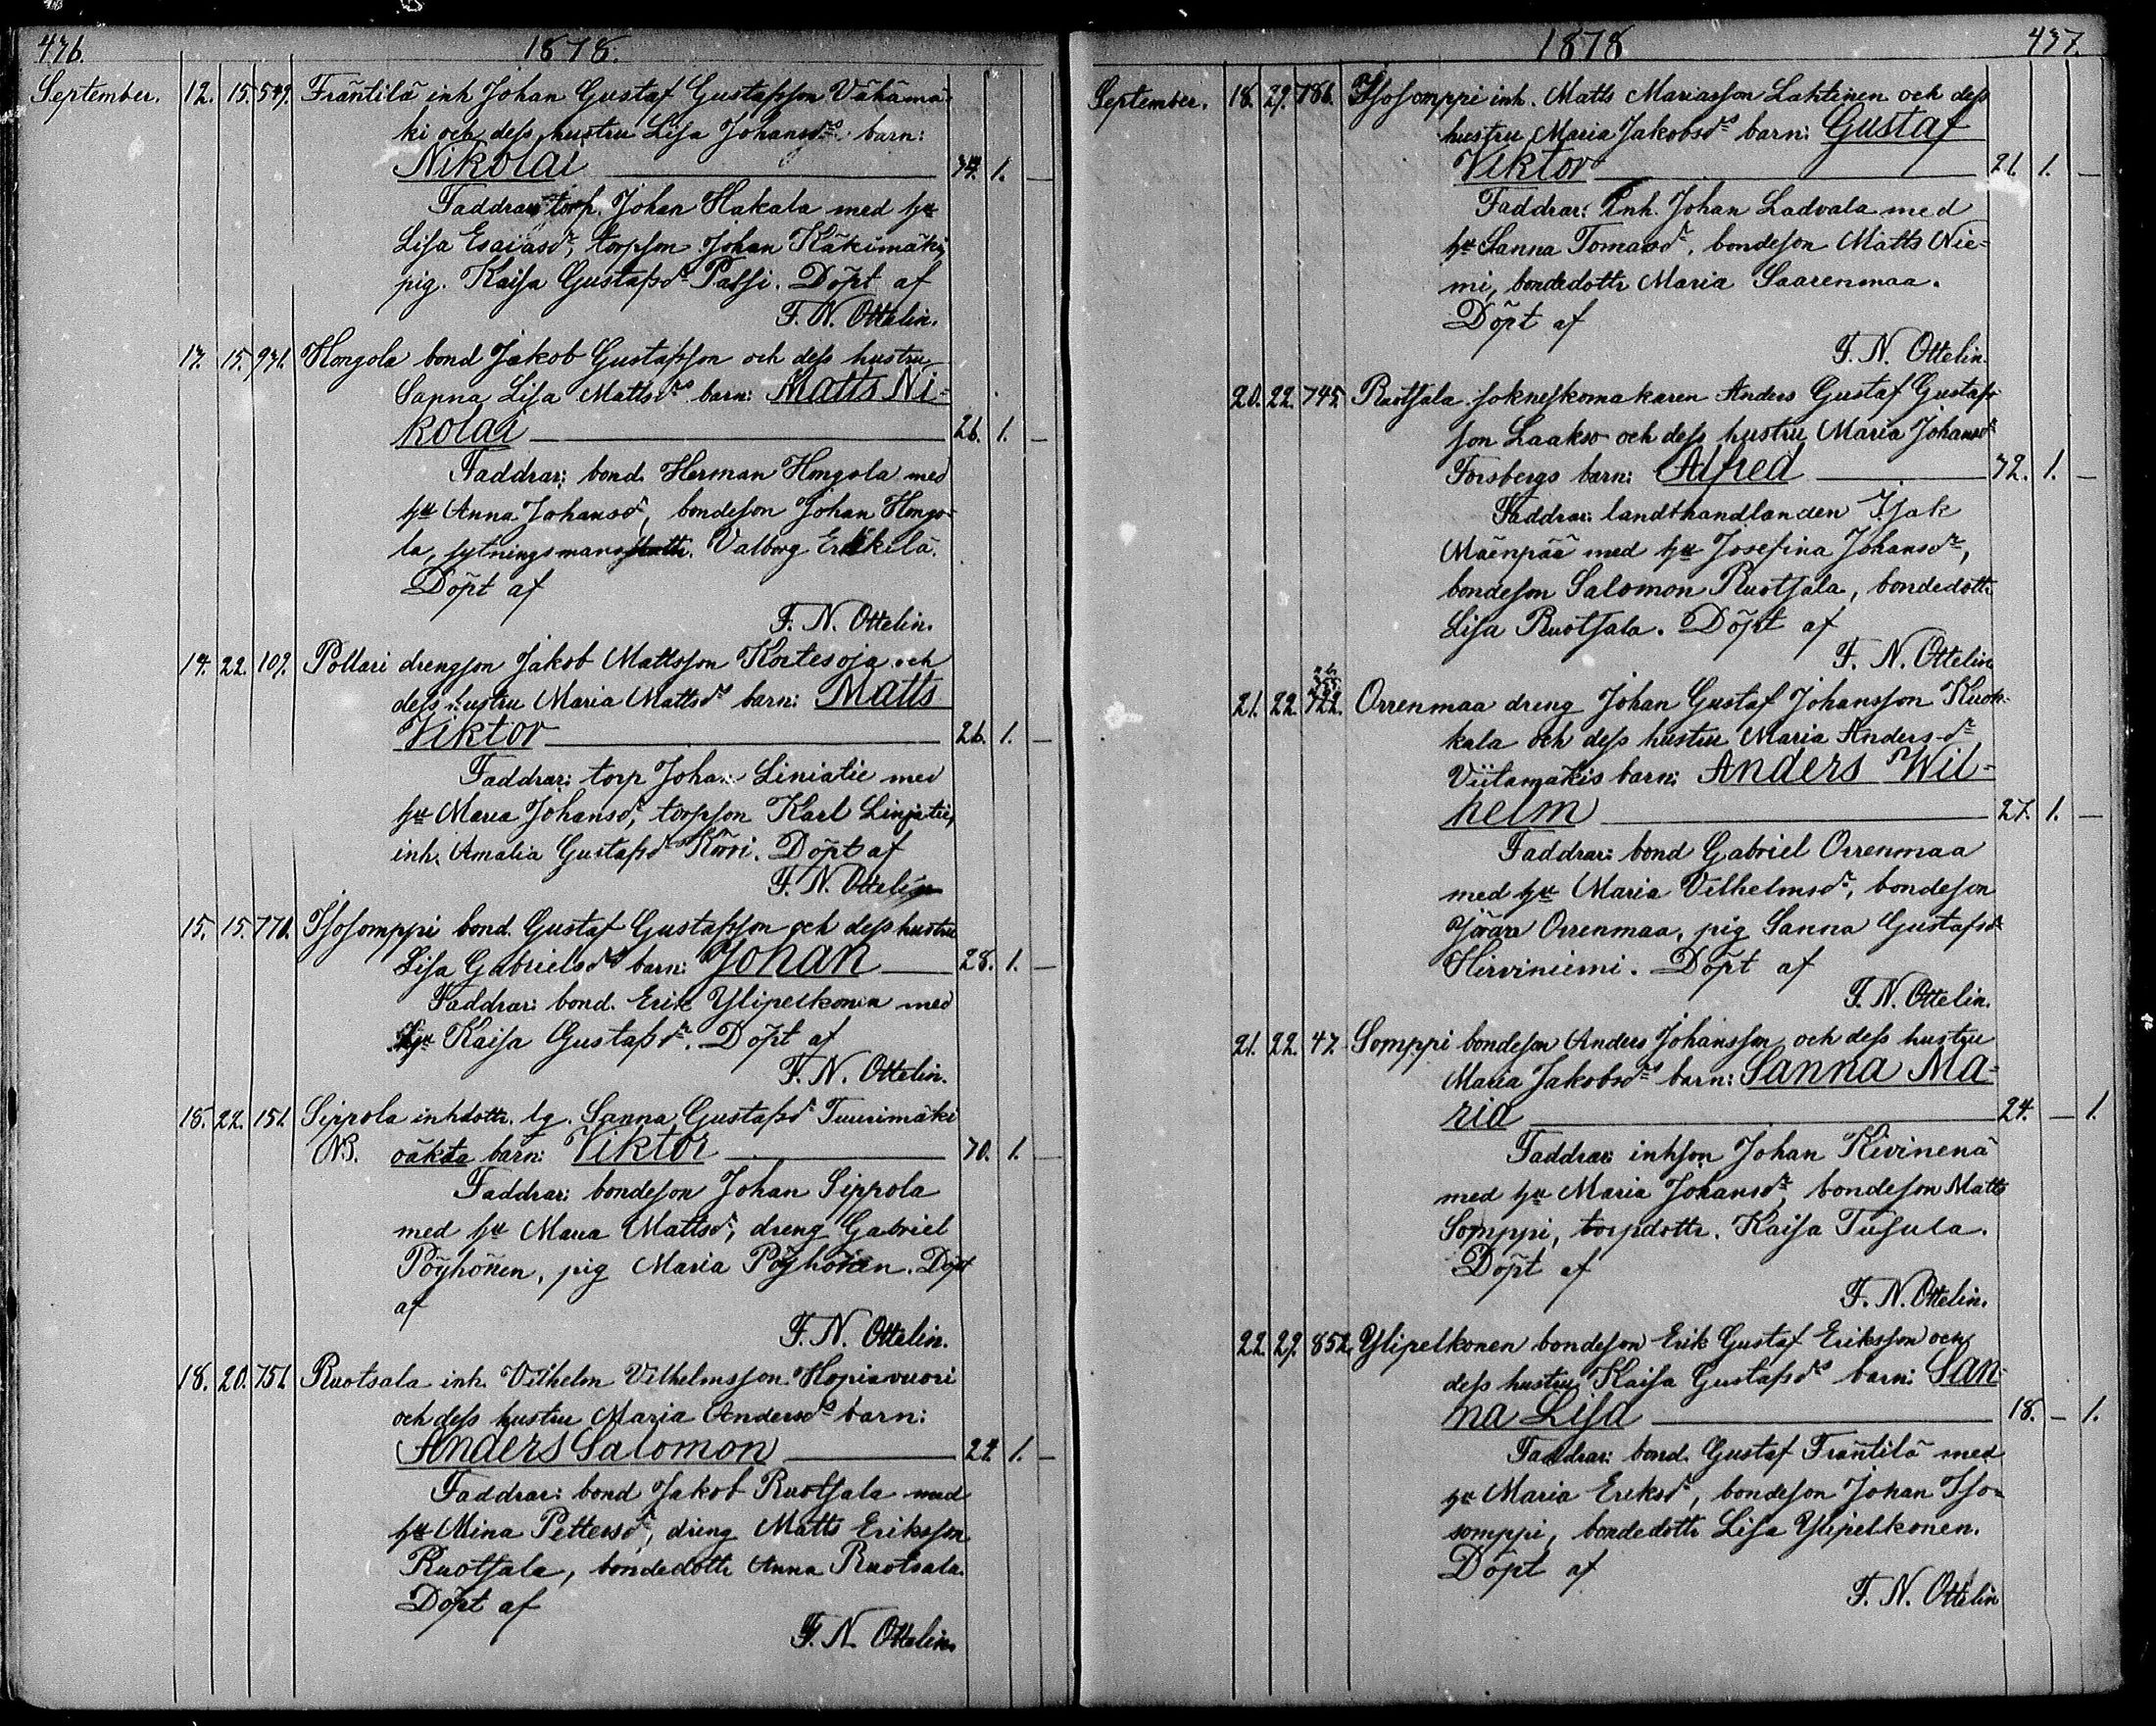 476. 1878.
September. 12. 15. 549. Fräntilä inh Johan Gustaf Gustafsson Vähämä-
ki och dess hustru Lisa Johansdrs barn:
Nikolai 34. 1. —
Faddrar: torp. Johan Hakala med hu
Lisa Esaiasdr, torpson Johan Käkimäki,
pig. Kaisa Gustafsdr Passi. Döpt af
F. N. Ottelin.
13. 15. 931. Hongola bond Jakob Gustafsson och dess hustru
Sanna Lisa Mattsdrs barn: Matts Ni-
kolai 26. 1. —
Faddrar: bond. Herman Hongola med
hu Anna Johansdr, bondeson Johan Hongo-
la, sytningsmans Valborg Erkkilä.
Döpt af
F. N. Ottelin.
14. 22. 109. Pollari drengson Jakob Mattsson Kortesoja och
dess hustru Maria Mattsdrs barn: Matts
Viktor 26. 1. —
Faddrar: torp Johan Liniatie med
hu Maria Johansdr, torpson Karl Liniatie,
inh. Amalia Gustafsdr Köri. Döpt af
F. N. Ottelin
15. 15. 770. Isosomppi bond. Gustaf Gustafsson och dess hustru
Lisa Gabrielsdrs barn: Johan 28. 1. —
Faddrar: bond. Erik Ylipelkonen med
hu Kaisa Gustafsdr. Döpt af
F. N. Ottelin.
18. 22. 151. Sippola inhdottr. lg. Sanna Gustafsdr Tuurimäki
NB. oäkta barn: Viktor 70. 1. —
Faddrar: bondeson Johan Sippola
med hu Maria Mattsdr, dreng Gabriel
Pöyhönen, pig Maria Pöyhönen. Döpt
af
F. N. Ottelin.
18. 20. 751. Ruotsala inh. Vilhelm Vilhelmsson Hopiavuori
och dess hustru Maria Andersdrs barn:
Anders Salomon 24. 1. —
Faddrar: bond Jakob Ruotsala med
hu Mina Pettersdr, dreng Matts Eriksson
Ruotsala, bondedottr Anna Ruotsala.
Döpt af
F. N. Ottelin.
1878 437.
September. 18. 29. 786. Isosomppi inh. Matts Mariasson Lahtinen och dess
hustru Maria Jakobsdrs barn: Gustaf
Viktor 21. 1. —
Faddrar: Inh. Johan Ladvala med
hu Sanna Tomasdr, bondeson Matts Nie-
mi, bondedottr Maria Saarenmaa.
Döpt af
F. N. Ottelin.
20. 22. 745. Ruotsala sokneskomakaren Anders Gustaf Gustafs-
son Laakso och dess hustru Maria Johansdr
Forsbergs barn: Alfred 32. 1. —
Faddrar: landthandlanden Isak
Mäenpää med hu Josefina Johansdr,
bondeson Salomon Ruotsala, bondedottr
Lisa Ruotsala. Döpt af
F. N. Ottelin
21. 22. 722. Orrenmaa dreng Johan Gustaf Johansson Kuok-
kala och dess hustru Maria Andersdr
Viitamäkis barn: Anders Wil-
helm 27. 1. —
Faddrar: bond Gabriel Orrenmaa
med hu Maria Vilhelmsdr, bondeson
Jövara Orrenmaa, pig Sanna Gustafsdr
Hirviniemi. Döpt af
F. N. Ottelin.
21. 22. 47. Somppi bondeson Anders Johansson och dess hustru
Maria Jakobsdrs barn: Sanna Ma-
ria 24. — 1.
Faddrar: inhson Johan Kivinenä
med hu Maria Johansdr, bondeson Matts
Somppi, torpdottr. Kaisa Tusula.
Döpt af
F. N. Ottelin.
22. 29. 852. Ylipelkonen bondeson Erik Gustaf Eriksson och
dess hustru Kaisa Gustafsdrs barn: San-
na Lisa 18. — 1.
Faddrar: bond. Gustaf Fräntilä med
hu Maria Eriksdr, bondeson Johan Iso-
somppi, bondedottr Lisa Ylipelkonen.
Döpt af
F. N. Ottelin